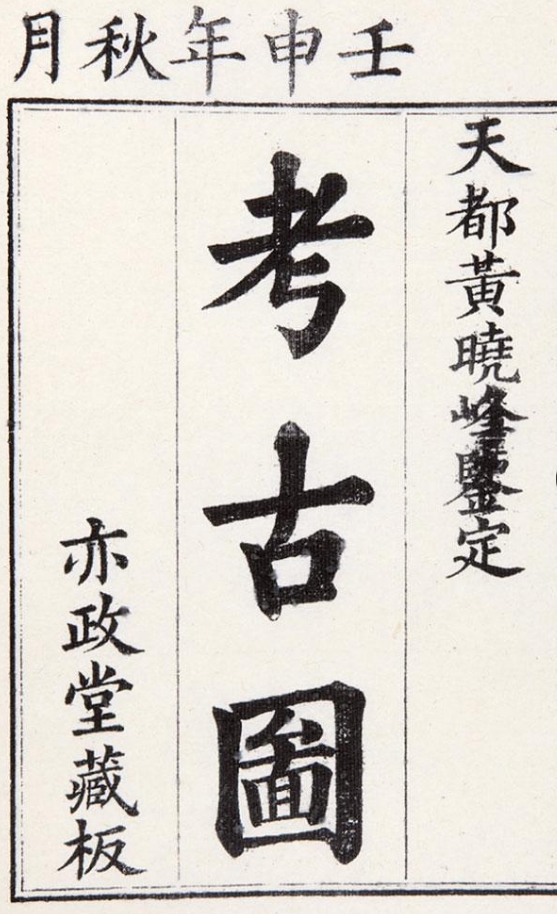 壬申年秋月
天都黃曉峰鑒定
考古圖
亦政堂藏板